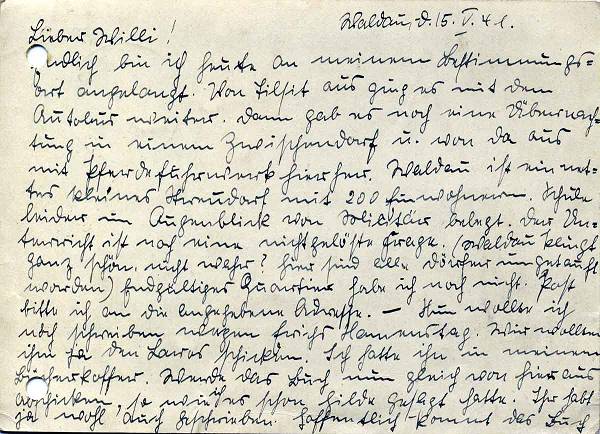 Waldau, d. 15. V. 41.
Lieber Willi!
Endlich bin ich heute an meinem Bestimmungs-
ort angelangt. Von Tilsit aus ging es mit dem
Autobus weiter. Dann gab es noch eine Übernach-
tung in einem Zwischendorf u. von da aus
mit Pferdefuhrwerk hierher. Waldau ist ein net-
tes kleines Streudorf mit 200 Einwohnern. Schule
leider im Augenblick von Militär belegt. Der Un-
terricht ist noch eine nichtgelöste Frage. (Waldau klingt
ganz schön, nicht wahr? Hier sind alle Dörfer umgetauft
worden) Endgültiges Quartier habe ich noch nicht. Post
bitte ich an die angegebene Adresse. — Nun wollte ich
noch schreiben wegen Erichs Namenstag. Wir wollten
ihm ja den Laros schicken. Ich hatte ihn in meinem
Bücherkoffer. Werde das Buch nun gleich von hier aus
abschicken, so wie ich es schon Hilde gesagt hatte. Ihr habt
ja wohl auch geschrieben. Hoffentlich kommt das Buch